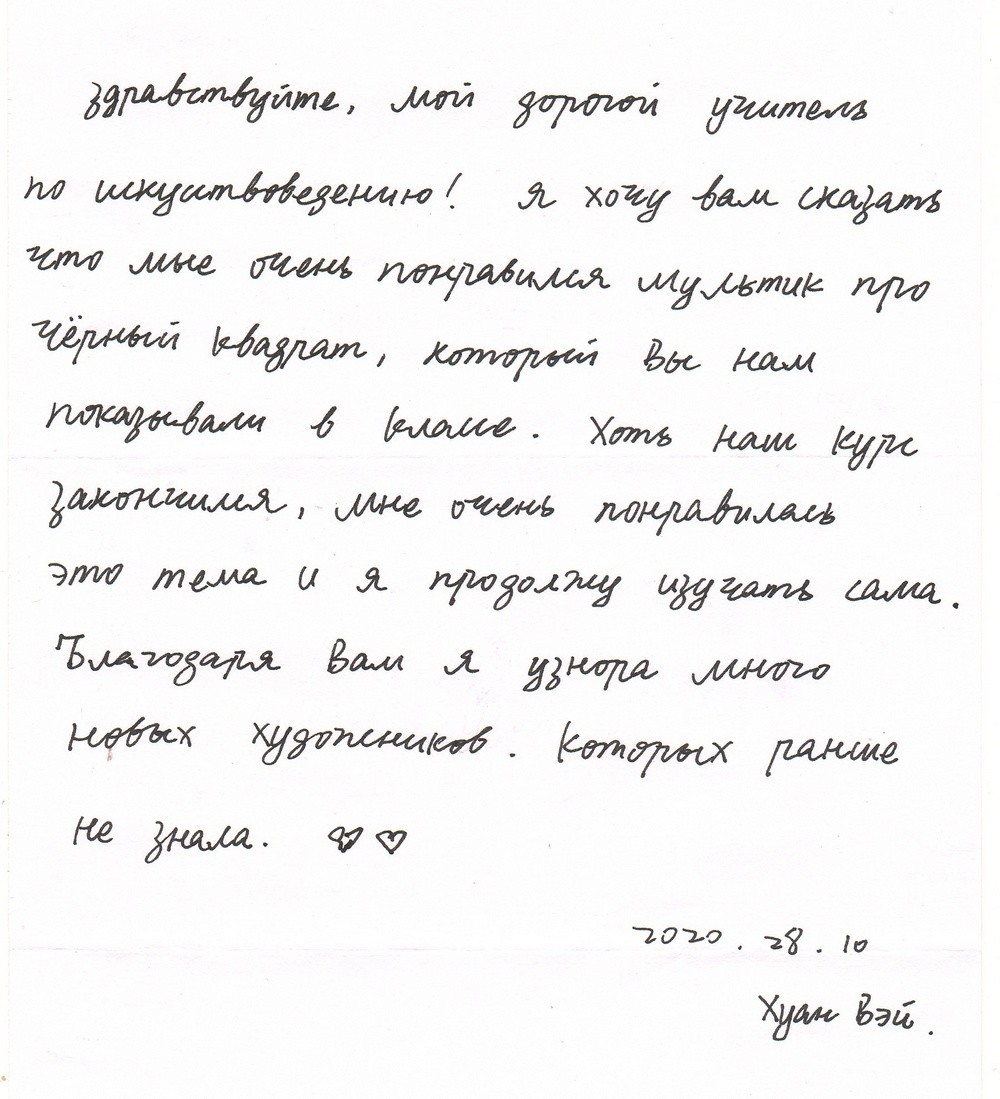 здравствуйте, мой дорогой учитель
по искуствоведению! я хочу вам сказать
что мне очень понравился мультик про
чёрный квадрат, который вы нам
показывали в классе. Хоть наш курс
закончился, мне очень понравилась
это тема и я продолжу изучать сама.
Благодаря вам я узнора много
новых художников. Которых ранше
не знала. ♡♡
2020.28.10
Хуан Вэй.